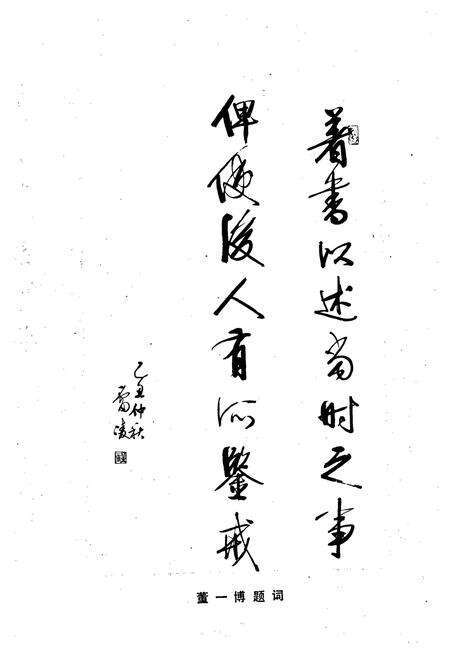 著書以述当时之事
俾使後人有所鑒戒
乙丑仲秋
董一博题词